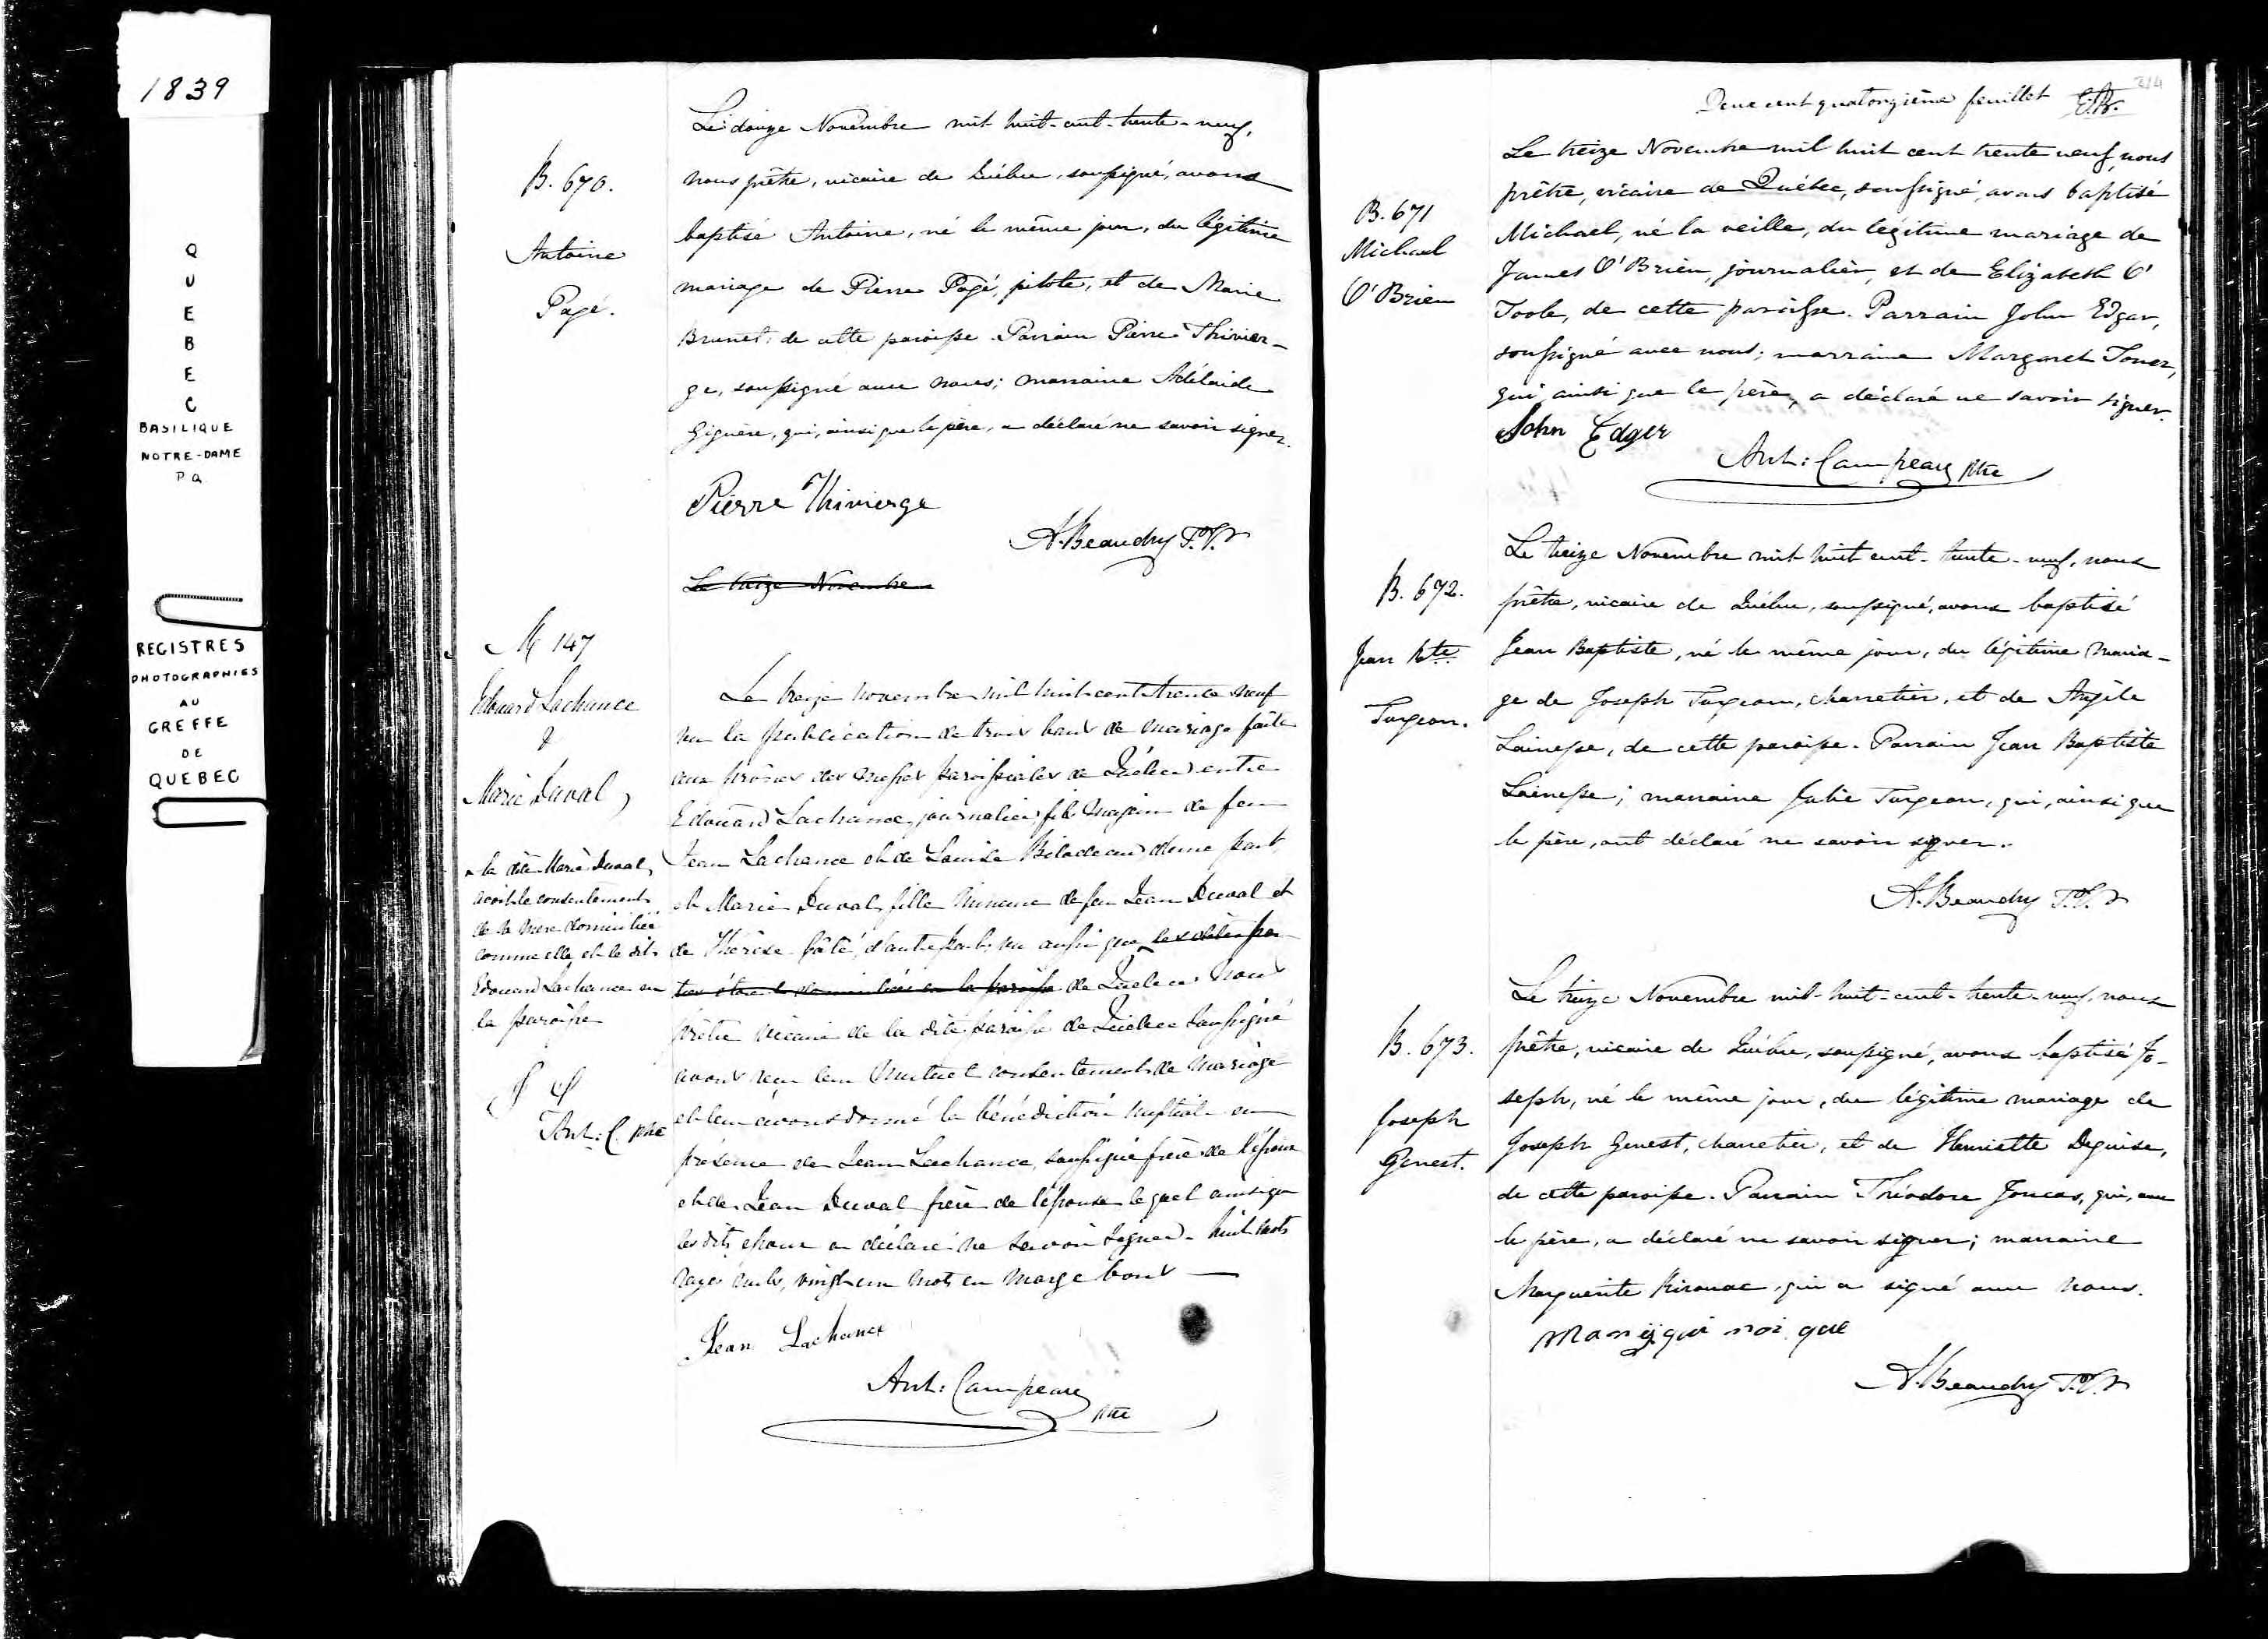 1839
QUEBEC
BASILIQUE
NOTRE-DAME
PQ
REGISTRES
PHOTOGRAPHIES
AU
GREFFE
DE
QUEBEC
B. 670.
Antoine
Pagé.
Le douze Novembre mil huit-cent-trente-neuf,
nous prêtre, vicaire de Québec, soussigné, avons
baptisé Antoine, né le même jour, du légitime
mariage de Pierre Pagé, pilote, et de Marie
Brunet de cette paroisse. Parrain Pierre Thivier-
ge, soussigné avec nous; marraine Adélaïde
Giguère, qui, ainsi que le père, a déclaré ne savoir signer.
Pierre Thivierge
A. Beaudry
Le treize Novembre
M 147
Edouard Lachance
&
Marie Duval
Le treize novembre mil huit cent trente neuf
vu la publication de trois bans de mariage faite
aux prônes des messes paroissiales de Québec entre
Edouard Lachance, journalier fils majeur de feu
Jean Lachance et de Louise Bilodeau d'une part
et Marie Duval fille mineure de feu Jean Duval et
de Thérèse Côté d'autre part, vu aussi que les dites par
ties étant domiciliées en la paroisse de Québec Nous
prêtre vicaire de la dite paroisse de Québec soussigné
avons reçu leur mutuel consentement de mariage
et leur avons donné la bénédiction nuptiale en
présence de Jean Lachance, soussigné frère de l'époux
et de Jean Duval frère de l'épouse lequel ainsi que
les dits époux a déclaré ne savoir signer. huit mots
rayés nuls, vingt un mots en marge bons
la dite Marie Duval
avoit le consentement
de sa mère domiciliée
comme elle, et le dit
Edouard Lachance en
la paroisse
Ant: C. ptre
Jean Lachance
Ant: Campeau
ptre
Deux cent quatorzième feuillet
214
B. 671
Michael
O'Brien
Le treize Novembre mil huit cent trente neuf, nous
prêtre, vicaire de Québec, soussigné, avons baptisé
Michael, né la veille, du légitime mariage de
James O'Brien, journalier, et de Elizabeth O'
Toole, de cette paroisse. Parrain John Edgar,
soussigné avec nous; marraine Margaret Toner,
qui ainsi que le père, a déclaré ne savoir signer.
John Edger
Ant: Campeau ptre
B. 672.
Jean Bte
Turgeon.
Le treize Novembre mil huit cent-trente-neuf, nous
prêtre, vicaire de Québec, soussigné, avons baptisé
Jean Baptiste, né le même jour, du légitime maria-
ge de Joseph Turgeon, charretier, et de Angèle
Lainesse, de cette paroisse. Parrain Jean Baptiste
Lainesse; marraine Julie Turgeon, qui, ainsi que
le père, ont déclaré ne savoir signer.
A. Beaudry
B. 673.
Joseph
Genest.
Le treize Novembre mil-huit-cent-trente-neuf, nous
prêtre, vicaire de Québec, soussigné, avons baptisé Jo-
seph, né le même jour, du légitime mariage de
Joseph Genest, charretier, et de Henriette Deguise,
de cette paroisse. Parrain Théodore Joncas, qui, avec
le père, a déclaré ne savoir signer; marraine
Marguerite Kirouac, qui a signé avec nous.
A. Beaudry